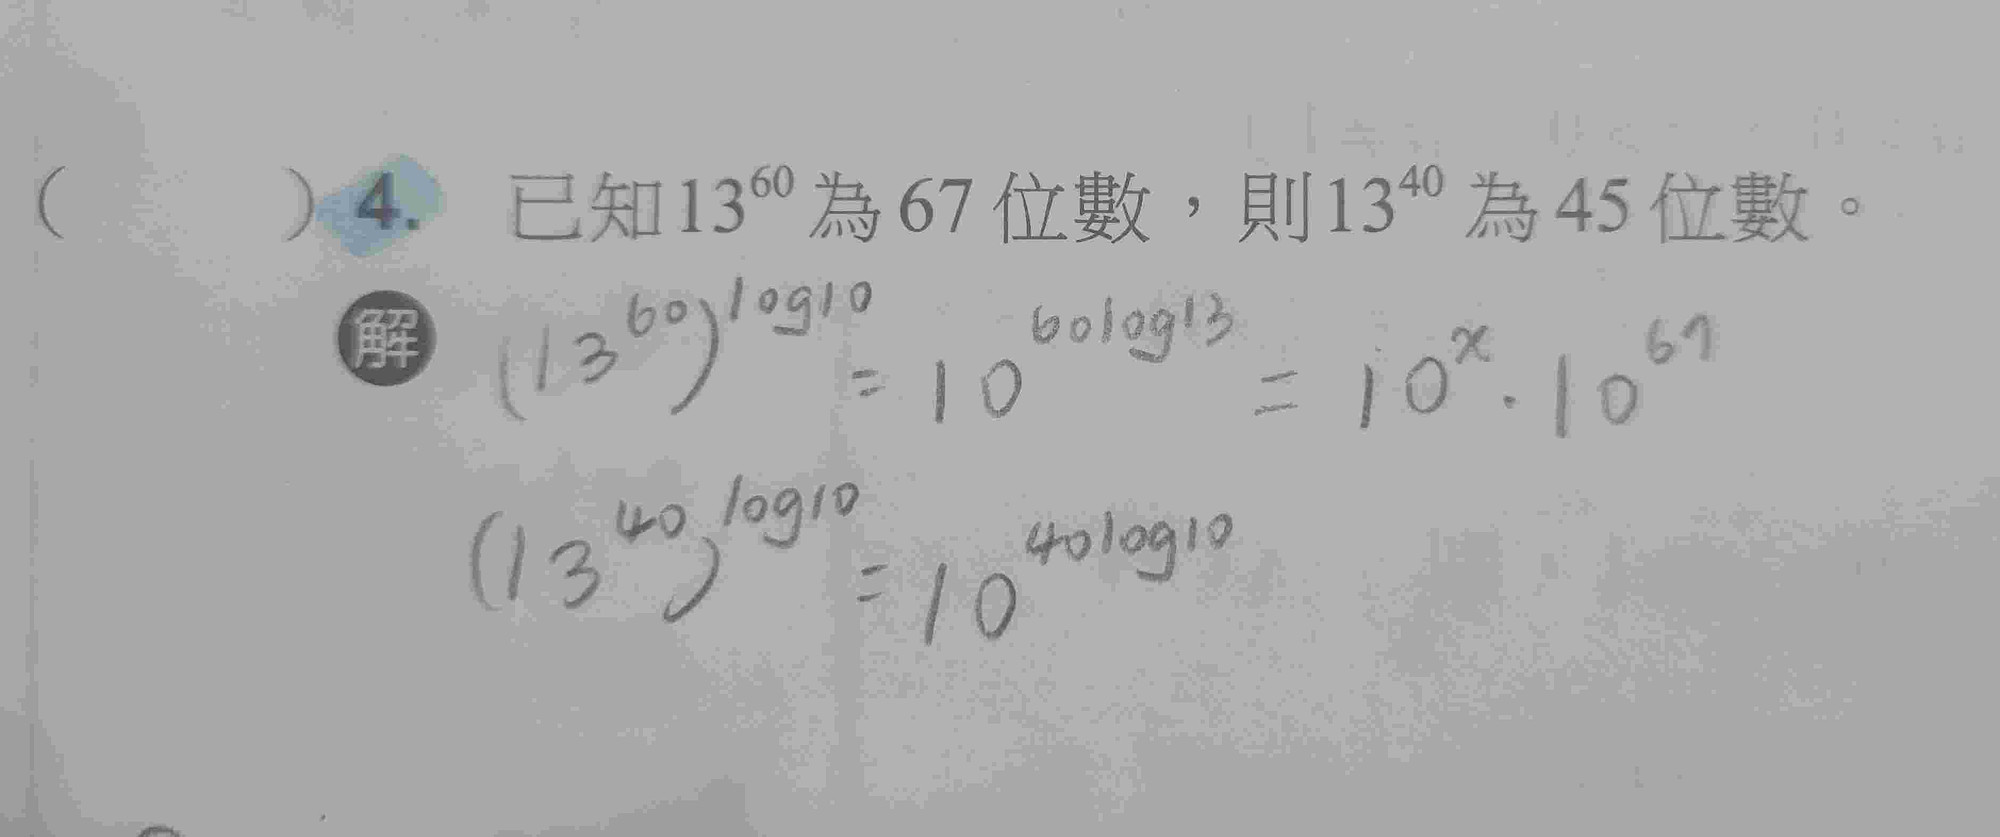 ( ) 4. 已知13⁶⁰ 為 67 位數，則13⁴⁰ 為 45 位數。
解 (13⁶⁰)^log10 = 10^60log13 = 10^x · 10^67
(13⁴⁰)^log10 = 10^40log10